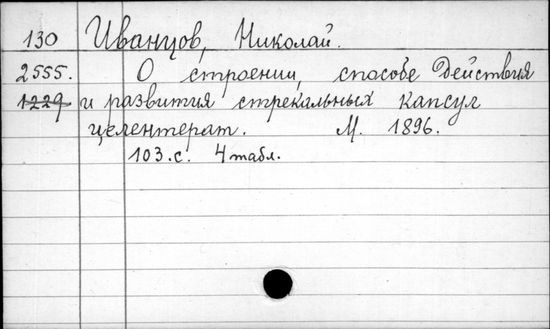 130 Иванцов, Николай.
2555. О строении, способе действия
1229 и развития стрекальных капсул
целентерат. М. 1896.
103.с. 4 табл.